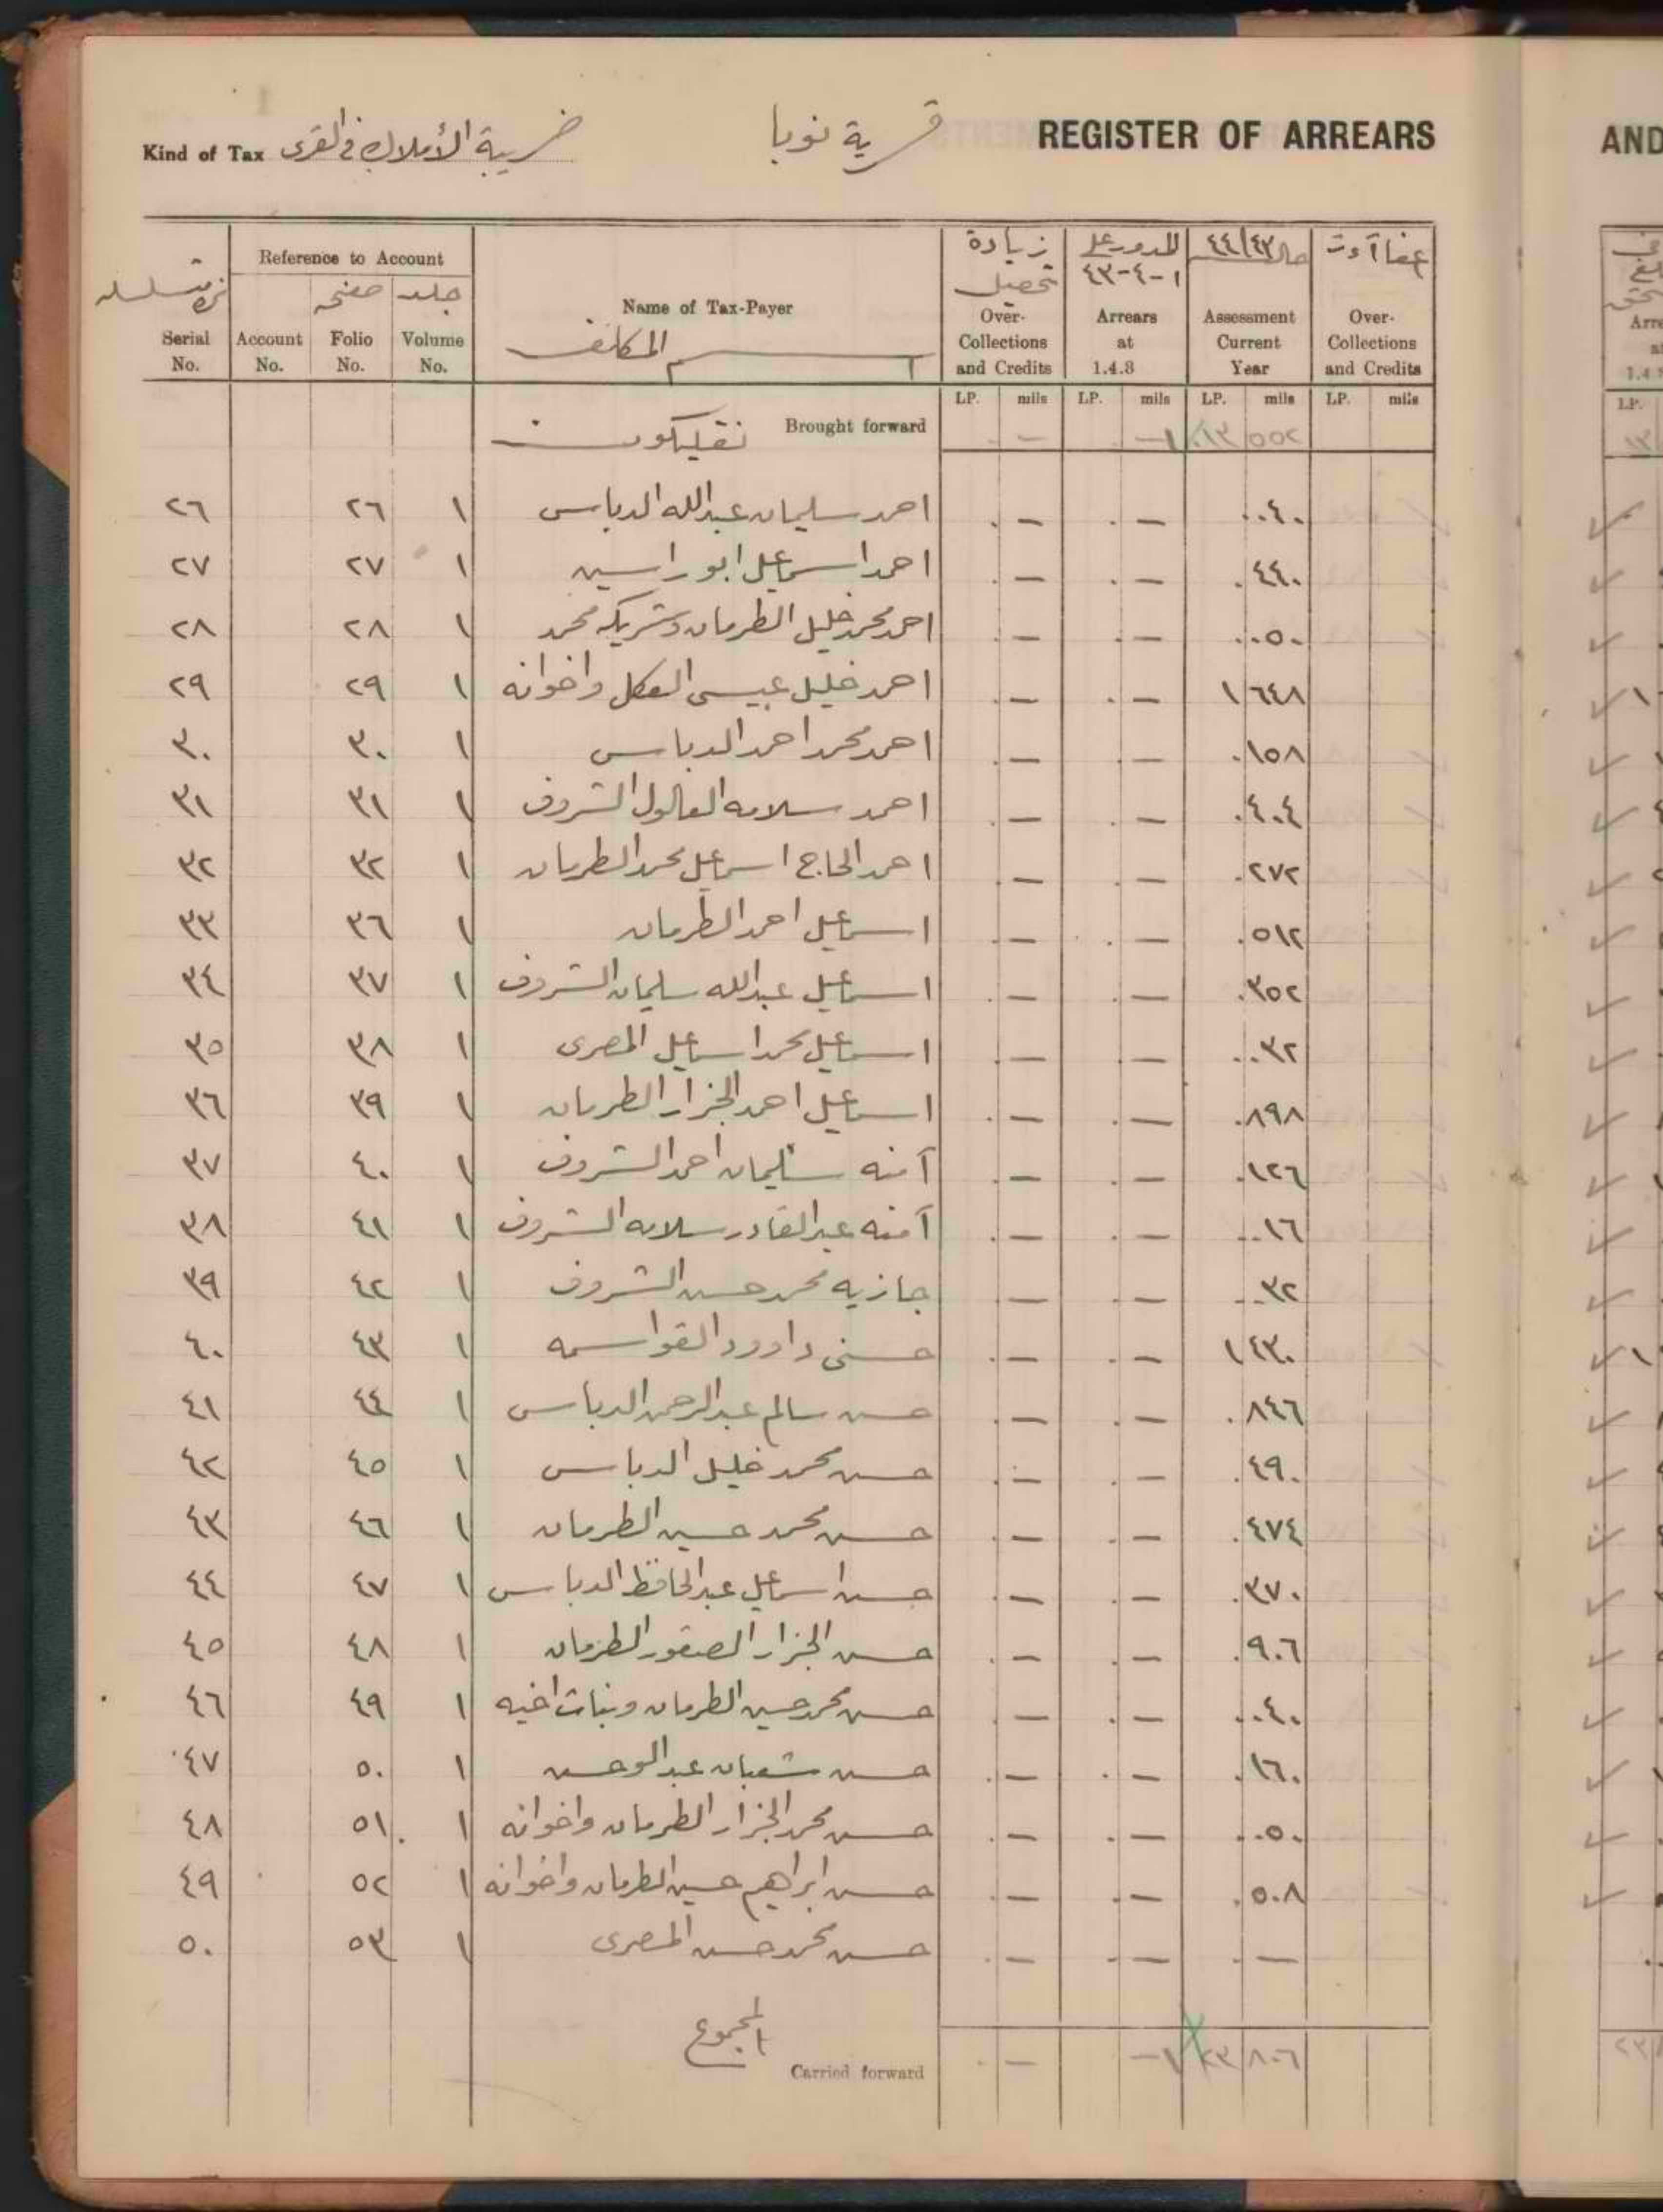 Kind of Tax ضريبة الأملاك في القرى قرية نوبا REGISTER OF ARREARS
Serial No. Reference to Account Account No. صفحة Folio No. جلد Volume No.
Name of Tax-Payer اسم المكلف
زيادة تحصيل Over-Collections and Credits
المدور على ١-٤-٤٣ Arrears at 1.4.3
مال ٤٤/٤٣ Assessment Current Year
Over-Collections and Credits
LP. mils LP. mils LP. mils LP. mils
Brought forward — — ١٣ ٥٥٢
٢٦ ٢٦ ١ احمد سليمان عبدالله الدباس — — ٠٠٤٠
٢٧ ٢٧ ١ احمد اسماعيل ابو راسين — — ٠ ٤٤٠
٢٨ ٢٨ ١ احمد محمد خليل الطرمان وشريكه محمد — — ٠٠٥٠
٢٩ ٢٩ ١ احمد خليل عيسى العكل واخوانه — — ١ ٦٤٨
٣٠ ٣٠ ١ احمد محمد احمد الدباس — — ٠ ١٥٨
٣١ ٣١ ١ احمد سلامه الشروف — — ٠ ٤٠٤
٣٢ ٣٢ ١ احمد الحاج اسماعيل محمد الطرمان — — ٠ ٢٧٢
٣٣ ٣٦ ١ اسماعيل احمد الطرمان — — ٠ ٥١٢
٣٤ ٣٧ ١ اسماعيل عبدالله سليمان الشروف — — ٠ ٣٥٢
٣٥ ٣٨ ١ اسماعيل محمد اسماعيل المصرى — — ٠٠٣٢
٣٦ ٣٩ ١ اسماعيل احمد الجزار الطرمان — — ٠ ٨٩٨
٣٧ ٤٠ ١ آمنه سليمان احمد الشروف — — ٠ ١٢٦
٣٨ ٤١ ١ آمنه عبد القادر سلامه الشروف — — ٠٠١٦
٣٩ ٤٢ ١ جازيه محمد حسن الشروف — — ٠٠٣٢
٤٠ ٤٣ ١ حسنى داوود القواسمه — — ١ ٤٣٠
٤١ ٤٤ ١ حسن سالم عبدالرحمن الدباس — — ٠ ٨٤٦
٤٢ ٤٥ ١ حسن محمد خليل الدباس — — ٠ ٤٩٠
٤٣ ٤٦ ١ حسن محمد حسين الطرمان — — ٠ ٤٧٤
٤٤ ٤٧ ١ حسن اسماعيل عبدالحافظ الدباس — — ٠ ٣٧٠
٤٥ ٤٨ ١ حسن الجزار الصقور الطرمان — — ٠ ٩٠٦
٤٦ ٤٩ ١ حسن محمد حسين الطرمان وبنات اخيه — — ٠٠٤٠
٤٧ ٥٠ ١ حسن شعبان — — ٠ ١٦٠
٤٨ ٥١ ١ حسن محمد الجزار الطرمان واخوانه — — ٠٠٥٠
٤٩ ٥٢ ١ حسن ابراهيم حسين الطرمان واخوانه — — ٠ ٥٠٨
٥٠ ٥٣ ١ حسن محمد حسن المصرى — — —
المجموع
Carried forward — — ٢٣ ٨٠٦
AND